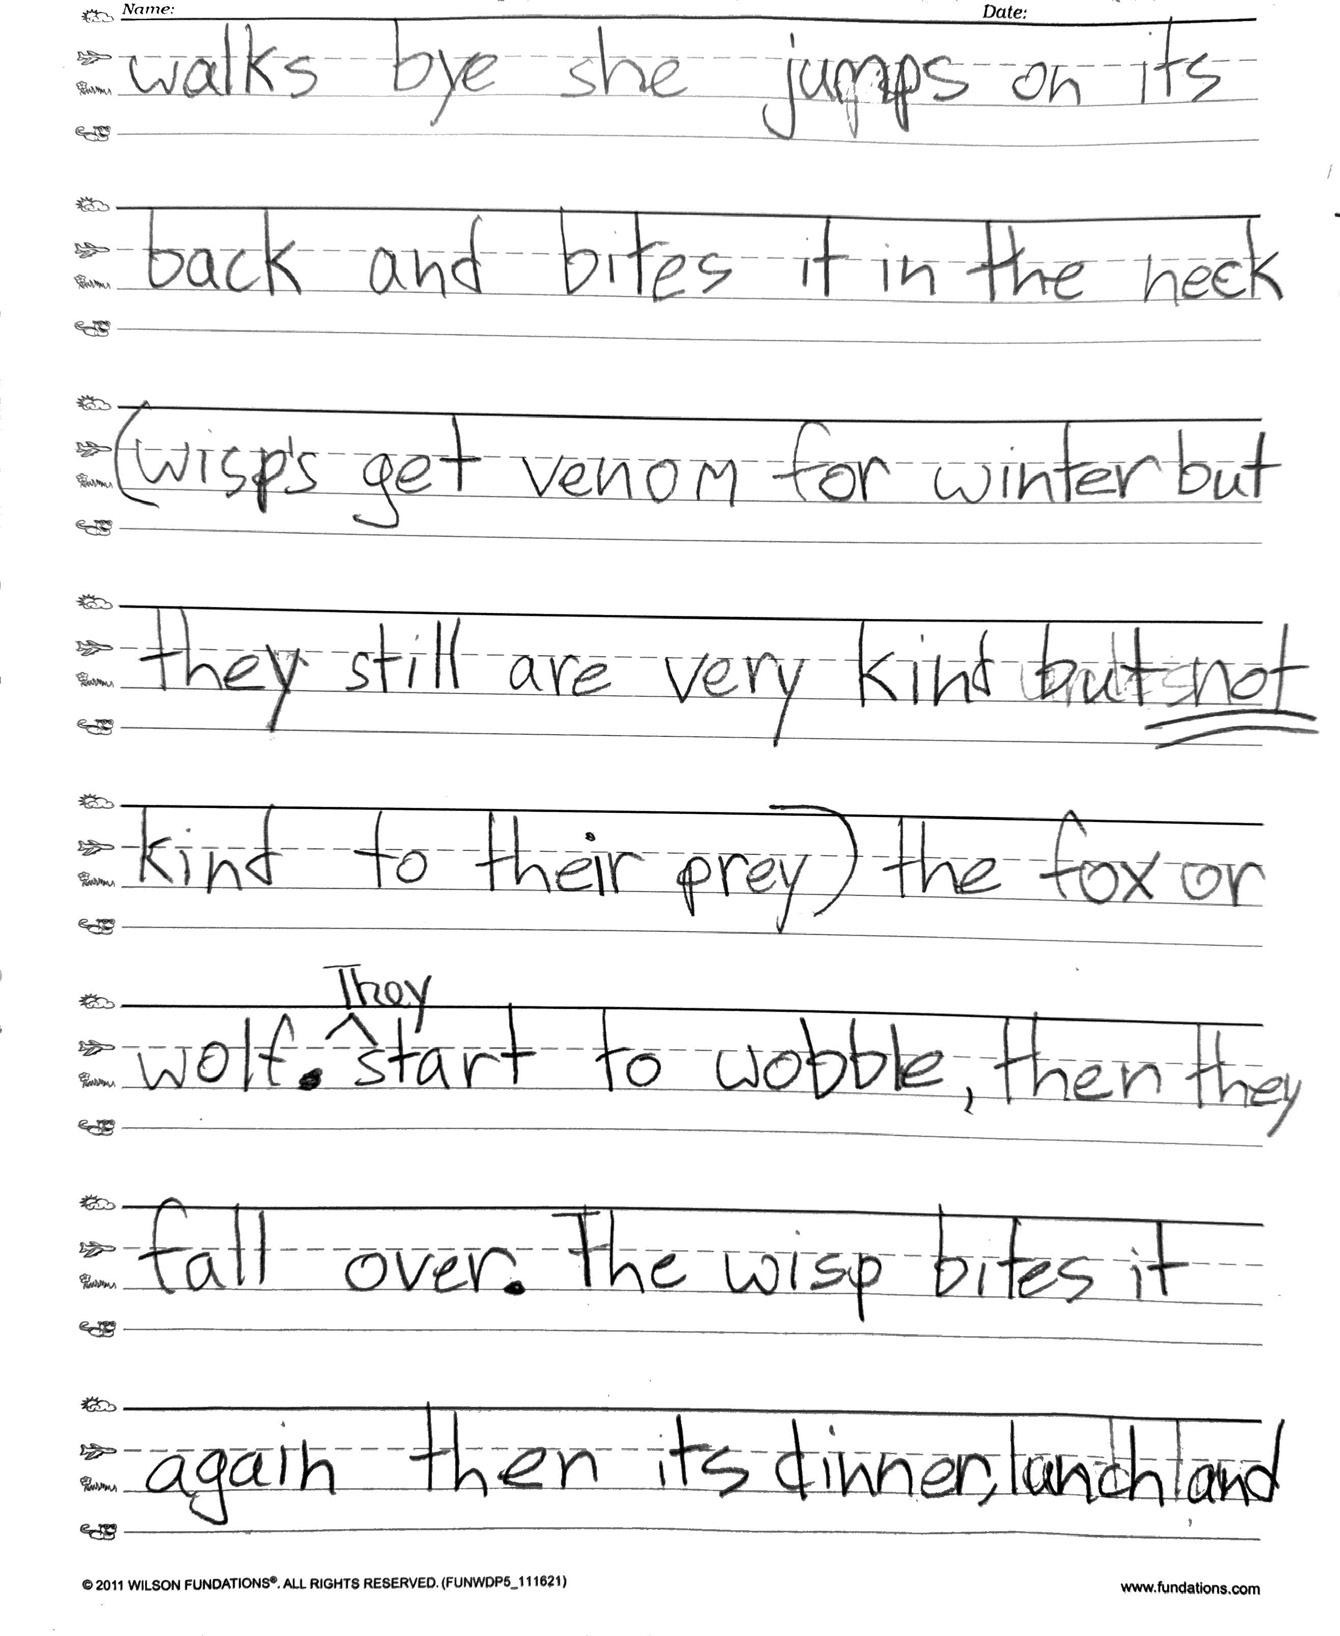 Name: Date:
walks bye she jumps on its
back and bites it in the neck
(wisp's get venom for winter but
they still are very kind but not
kind to their prey) the fox or
They
wolf. ^start to wobble, then they
fall over. The wisp bites it
again then its dinner, lunch and
© 2011 WILSON FUNDATIONS®. ALL RIGHTS RESERVED. (FUNWDP5_111621) www.fundations.com